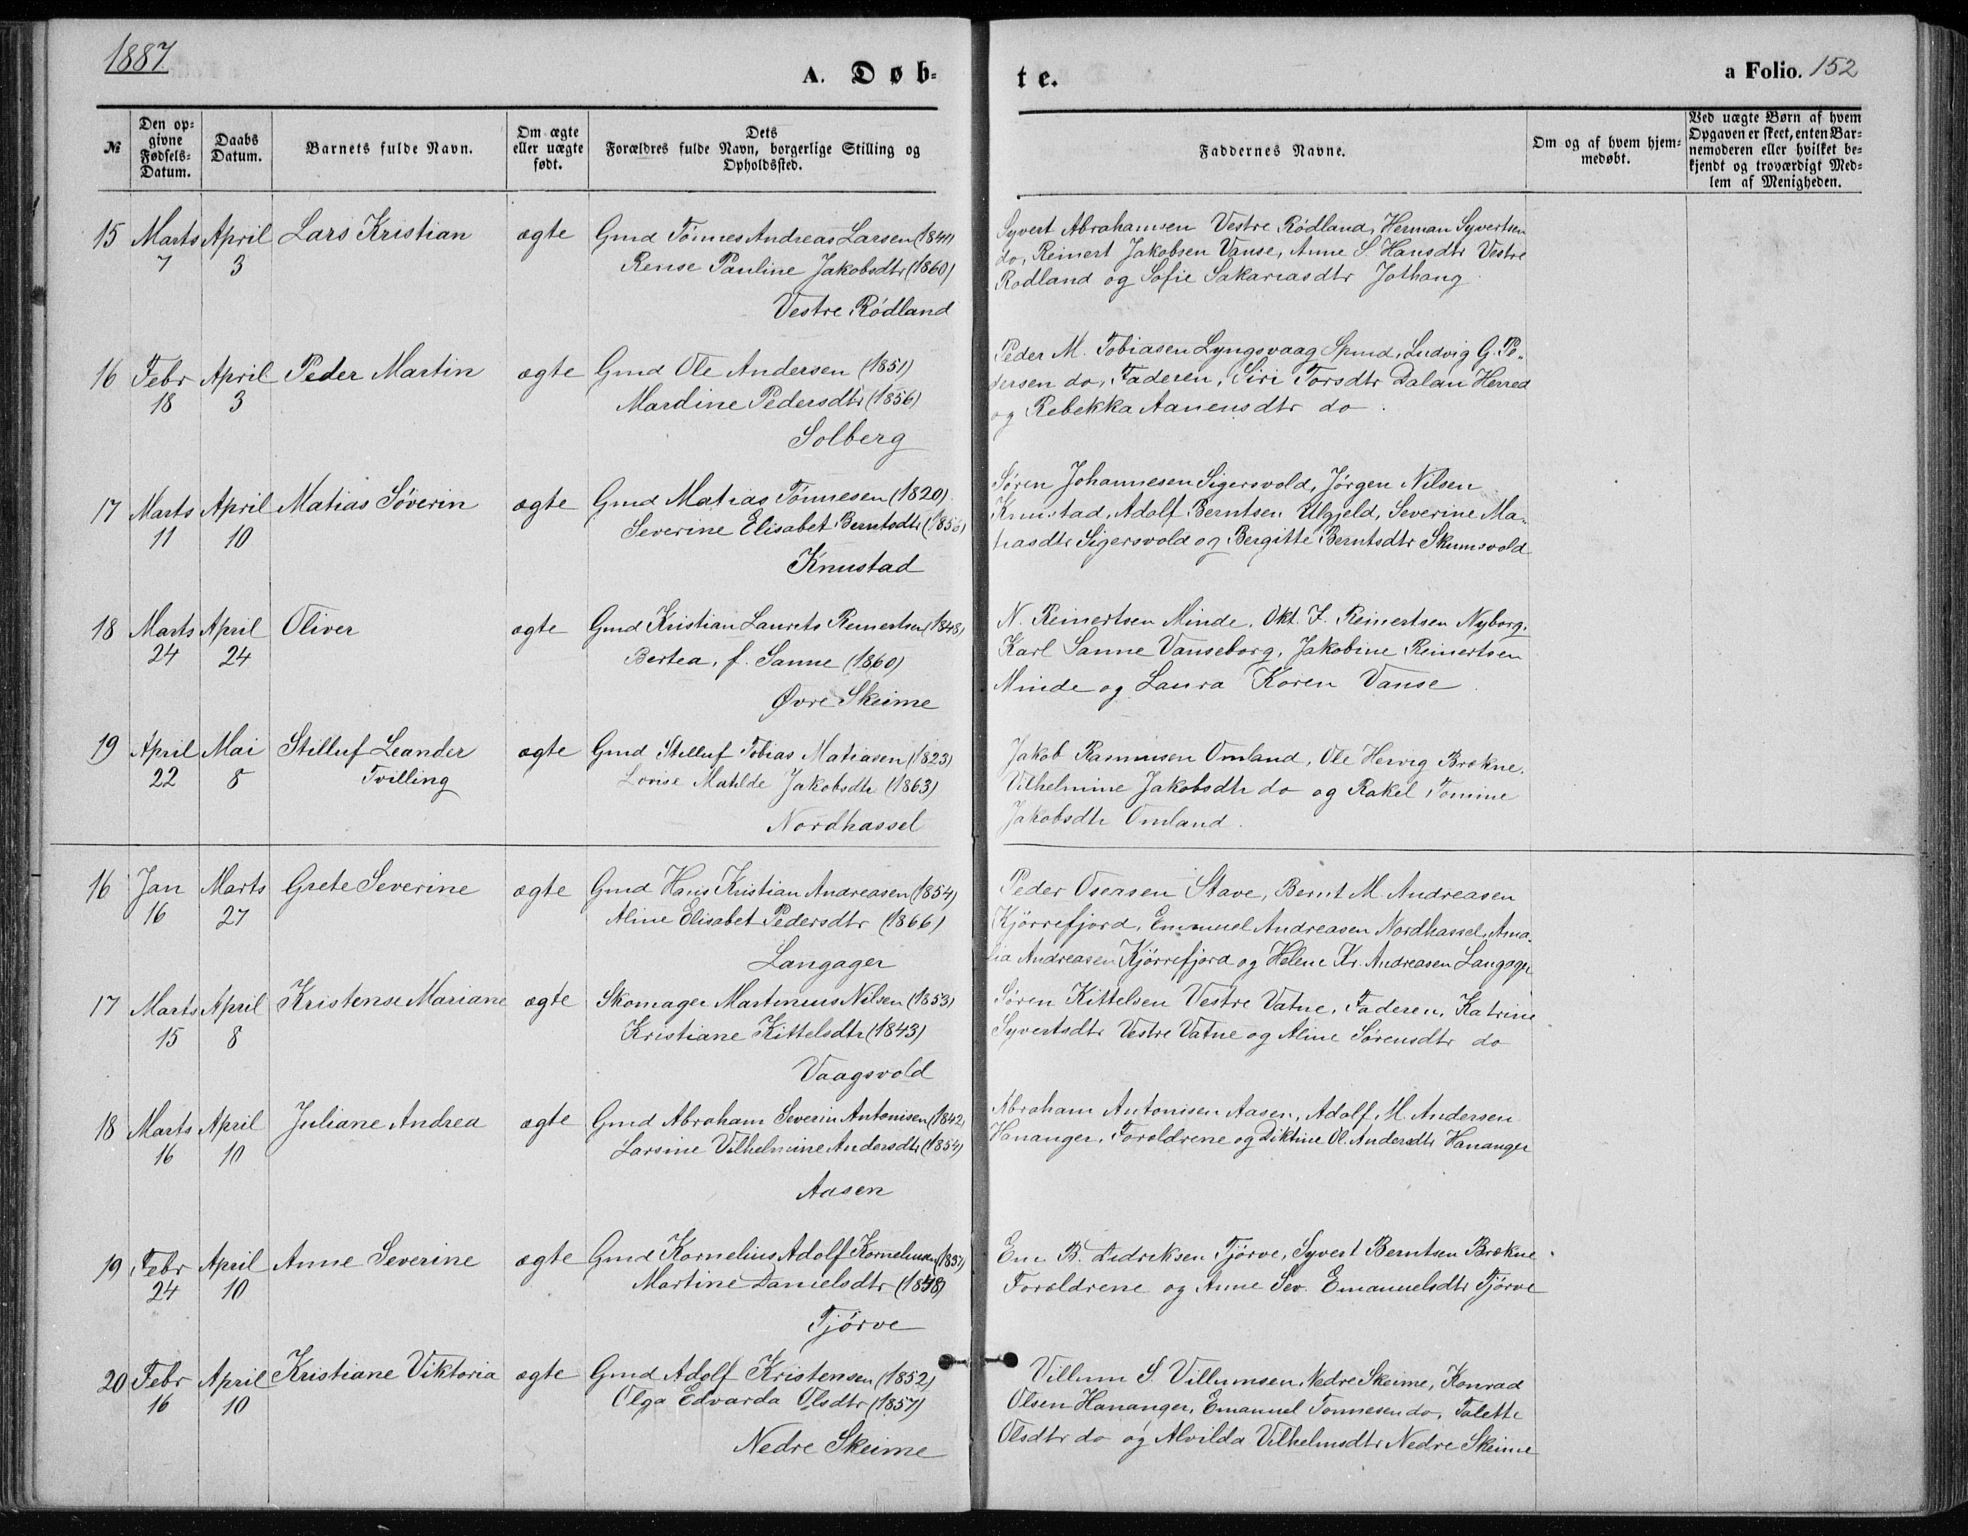 1887
A. Døb-
te.
a Folio. 152
№
Den op-
givne
Fødsels-
Datum.
Daabs
Datum.
Barnets fulde Navn.
Om ægte
eller uægte
født.
Dets
Forældres fulde Navn, borgerlige Stilling og
Opholdssted.
Faddernes Navne.
Om og af hvem hjem-
medøbt.
Ved uægte Børn af hvem
Opgaven er skeet, enten Bar-
nemoderen eller hvilket be-
kjendt og troværdigt Med-
lem af Menigheden.
15 Marts April Lars Kristian ægte Gmd Tønnes Andreas Larsen (1841)
7 3 Rense Pauline Jakobsdtr (1860)
Vestre Rødland
Syvert Abrahamsen Vestre Rødland, Herman Syvertsen
do, Reinert Jakobsen Vanse, Anne S. Hansdtr Vestre
Rødland og Sofie Sakariasdtr Jothang
16 Febr April Peder Martin ægte Gmd Ole Andersen (1851)
18 3 Mardine Pedersdtr (1856)
Solberg
Peder M. Tobiasen Lyngsvaag Spind, Ludvig G. Pe-
dersen do, Faderen, Siri Torsdtr Dalan Herred
og Rebekka Aanensdtr do.
17 Marts April Matias Søverin ægte Gmd Matias Tønnesen (1820)
11 10 Severine Elisabet Berntsdtr (1856)
Knustad
Søren Johannesen Sigersvold, Jørgen Nilsen
Knustad, Adolf Berntsen Ulgjeld, Severine Ma-
tiasdtr Sigersvold og Bergitte Berntsdtr Skumsvold
18 Marts April Oliver ægte Gmd Kristian Laurets Reinertsen (1848)
24 24 Bertea, f. Sanne (1860)
Øvre Skeime
N. Reinertsen Minde, Okt. F. Reinertsen Nyborg,
Karl Sanne Vanseborg, Jakobine Reinertsen
Minde og Laura Koren Vanse.
19 April Mai Stilluf Leander ægte Gmd Stilluf Tobias Matiasen (1823)
22 8 Tvilling Lovise Matilde Jakobsdtr (1863)
Nordhassel
Jakob Rasmusen Omland, Ole Hervig Brekne,
Vilhelmine Jakobsdtr do og Rakel Tomine
Jakobsdtr Omland.
16 Jan Marts Grete Severine ægte Gmd Hans Kristian Andreasen (1854)
16 27 Aline Elisabet Pedersdtr (1866)
Langager
Peder Oseasen Stave, Bernt M. Andreasen
Kjørrefjord, Emanuel Andreasen Nordhassel, Ama-
lia Andreasen Kjørrefjord og Helene Kr. Andreasen Langager
17 Marts April Kristense Mariane ægte Skomager Martinius Nilsen (1853)
15 8 Kristiane Kittelsdtr (1843)
Vaagsvold
Søren Kittelsen Vestre Vatne, Faderen, Katrine
Syvertsdtr Vestre Vatne og Aline Sørensdtr do
18 Marts April Juliane Andrea ægte Gmd Abraham Severin Antonisen (1842
16 10 Larsine Vilhelmine Andersdtr (1854)
Aasen
Abraham Antonisen Aasen, Adolf M. Andersen
Hananger, Forældrene og Diktine Ol. Andersdtr Hananger
19 Febr April Anne Severine ægte Gmd Kornelius Adolf Korneliusen (1851)
24 10 Martine Danielsdtr (1848)
Tjørve
Em. B. Didriksen Tjørve, Syvert Berntsen Brekne
Forældrene og Anne Sev. Emanuelsdtr Tjørve
20 Febr April Kristiane Viktoria ægte Gmd Adolf Kristensen (1852)
16 10 Olga Edvarda Olsdtr (1857)
Nedre Skeime
Villum S. Villumsen Nedre Skeime, Konrad
Olsen Hananger, Emanuel Tønnesen do, Talette
Olsdtr do og Alvilda Vilhelmsdtr Nedre Skeime